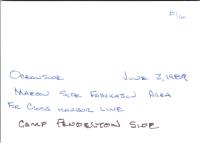 #16
Oceanside June 3, 1989
Maron Site Fabrication Area
For Cross Harbor Line
Camp Pendleton Side